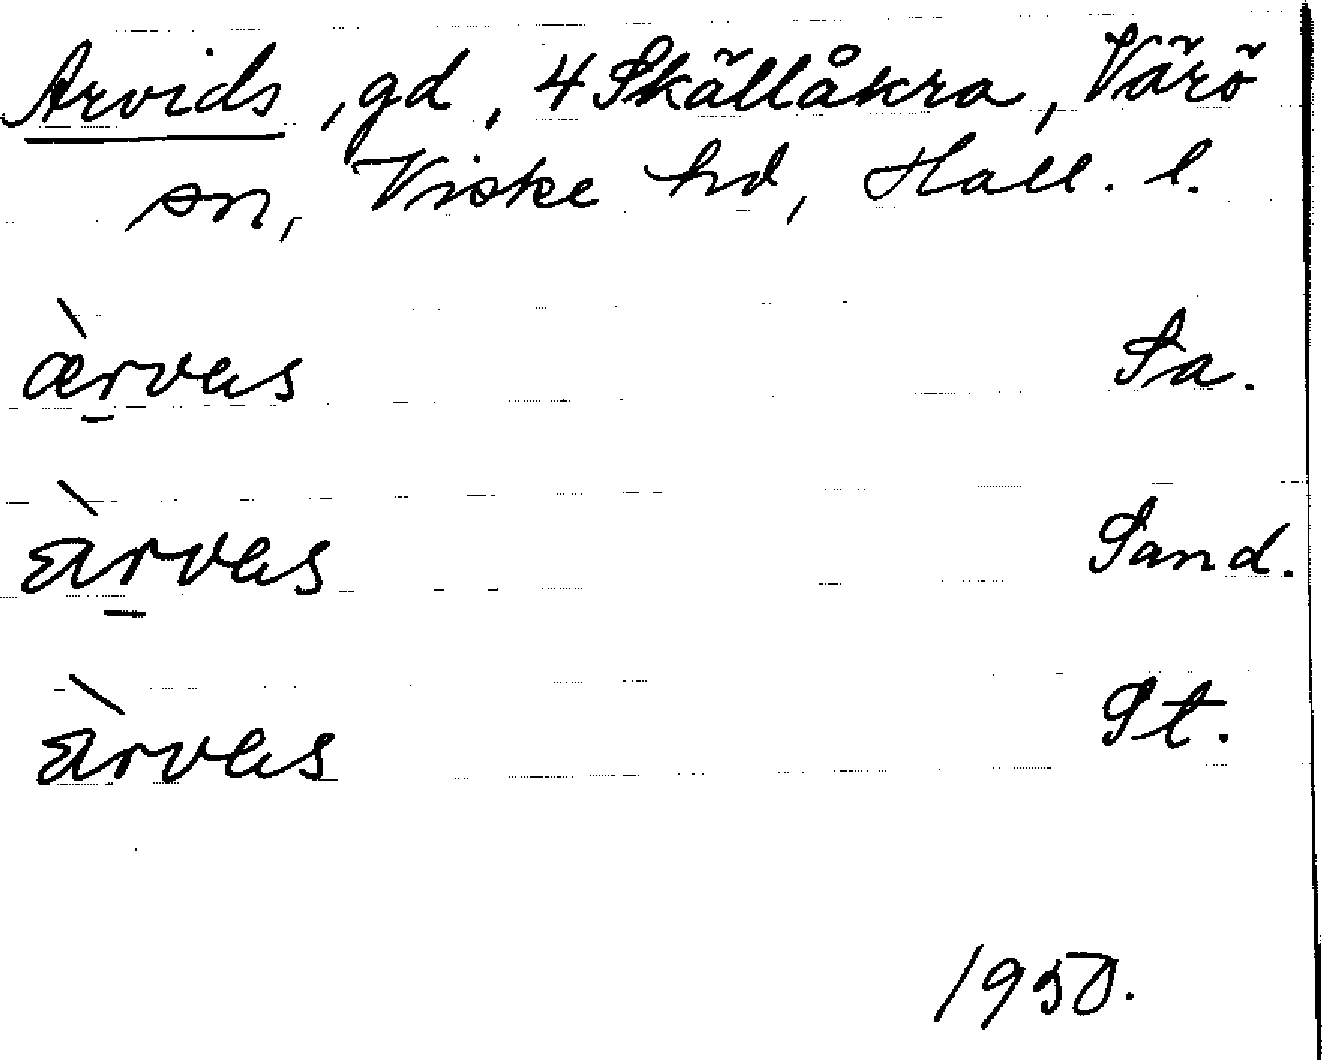 Arvids, gd, 4 Skällåkra, Värö
sn, Viske hd, Hall. l.
àrvas Sa.
àrvas Sand.
àrvas St.
1950.